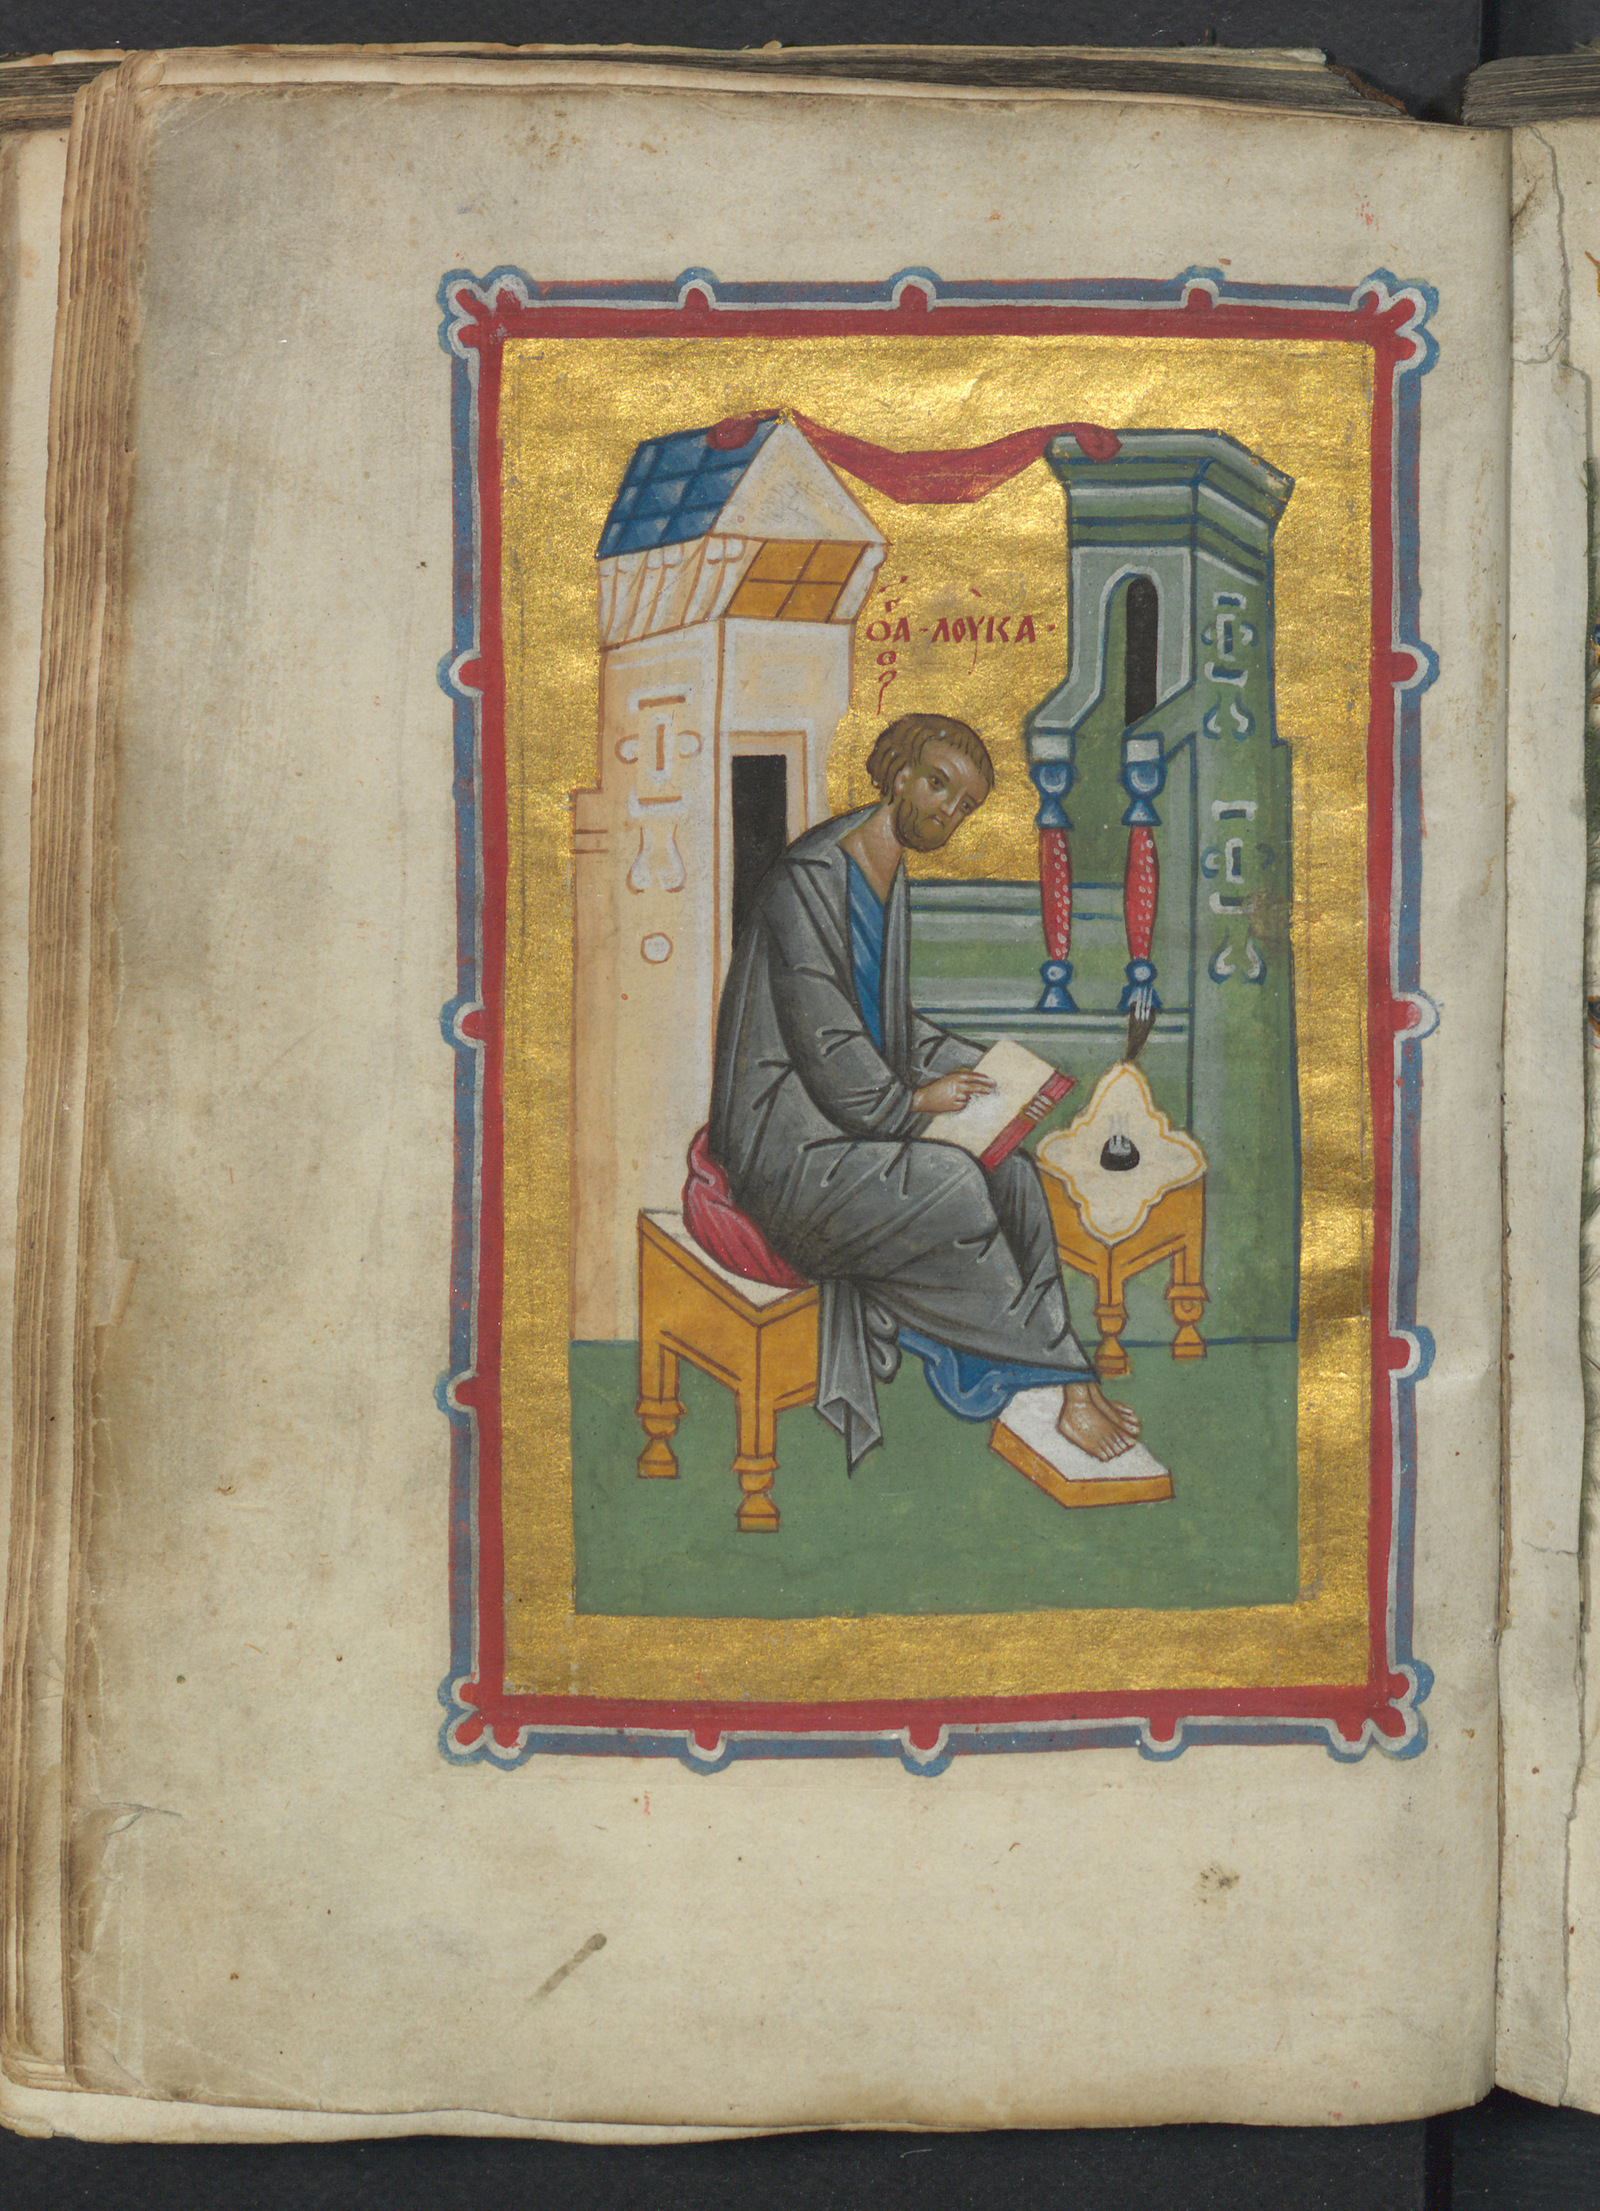 ὁ ἅγιος · λουκᾶ ·